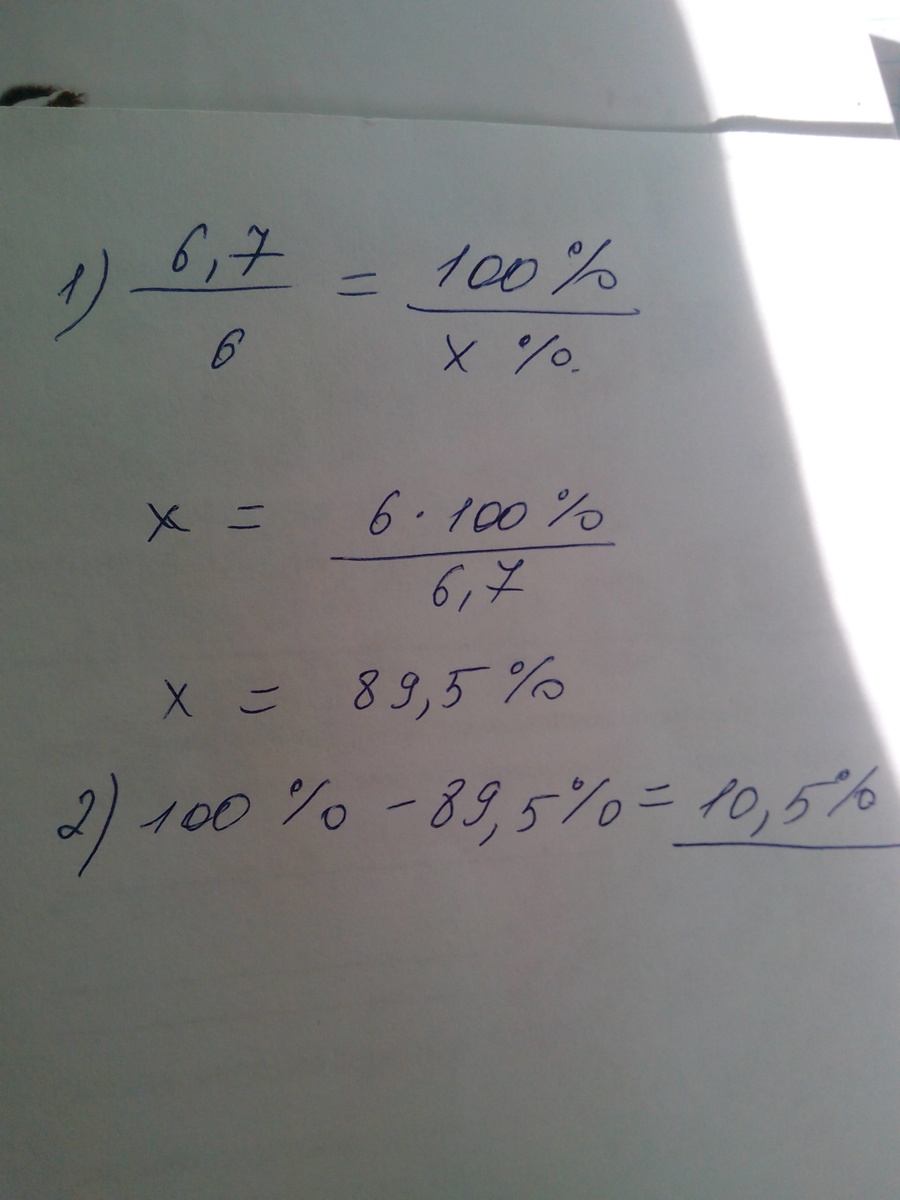 1) 6,7 / 6 = 100% / x %.
x = 6·100% / 6,7
x = 89,5%
2) 100% - 89,5% = 10,5%